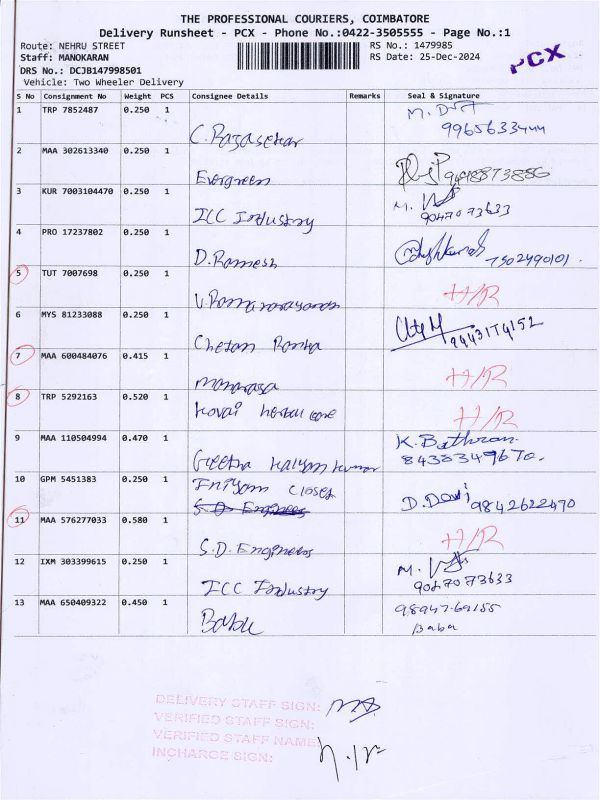 THE PROFESSIONAL COURIERS, COIMBATORE
Delivery Runsheet - PCX - Phone No.:0422-3505555 - Page No.:1
Route: NEHRU STREET
Staff: MANOKARAN
DRS No.: DCJB147998501
Vehicle: Two Wheeler Delivery
RS No.: 1479985
RS Date: 25-Dec-2024
PCX
S No Consignment No Weight PCS Consignee Details Remarks Seal & Signature
1 TRP 7852487 0.250 1 C. Rajasekar M. 9965633444
2 MAA 302613340 0.250 1 Evergreen
3 KUR 7003104470 0.250 1 ICC Industry M. 9047073633
4 PRO 17237802 0.250 1 D. Ramesh 7502490101.
5 TUT 7007698 0.250 1 H/R
6 MYS 81233088 0.250 1 Chetan
7 MAA 600484076 0.415 1 Manarasa H/R
8 TRP 5292163 0.520 1 Kovai herbal care H/R
9 MAA 110504994 0.470 1 Geetha Kalyan Kumar K. 8438349670.
10 GPM 5451383 0.250 1 Iniyam Closes D. Devi 9842622470
11 MAA 576277033 0.580 1 S.D. Engineers H/R
12 IXM 303399615 0.250 1 ICC Industry M. 9047073633
13 MAA 650409322 0.450 1 Babu 98947-69155
Baba
DELIVERY STAFF SIGN:
VERIFIED STAFF SIGN:
VERIFIED STAFF NAME:
INCHARGE SIGN: